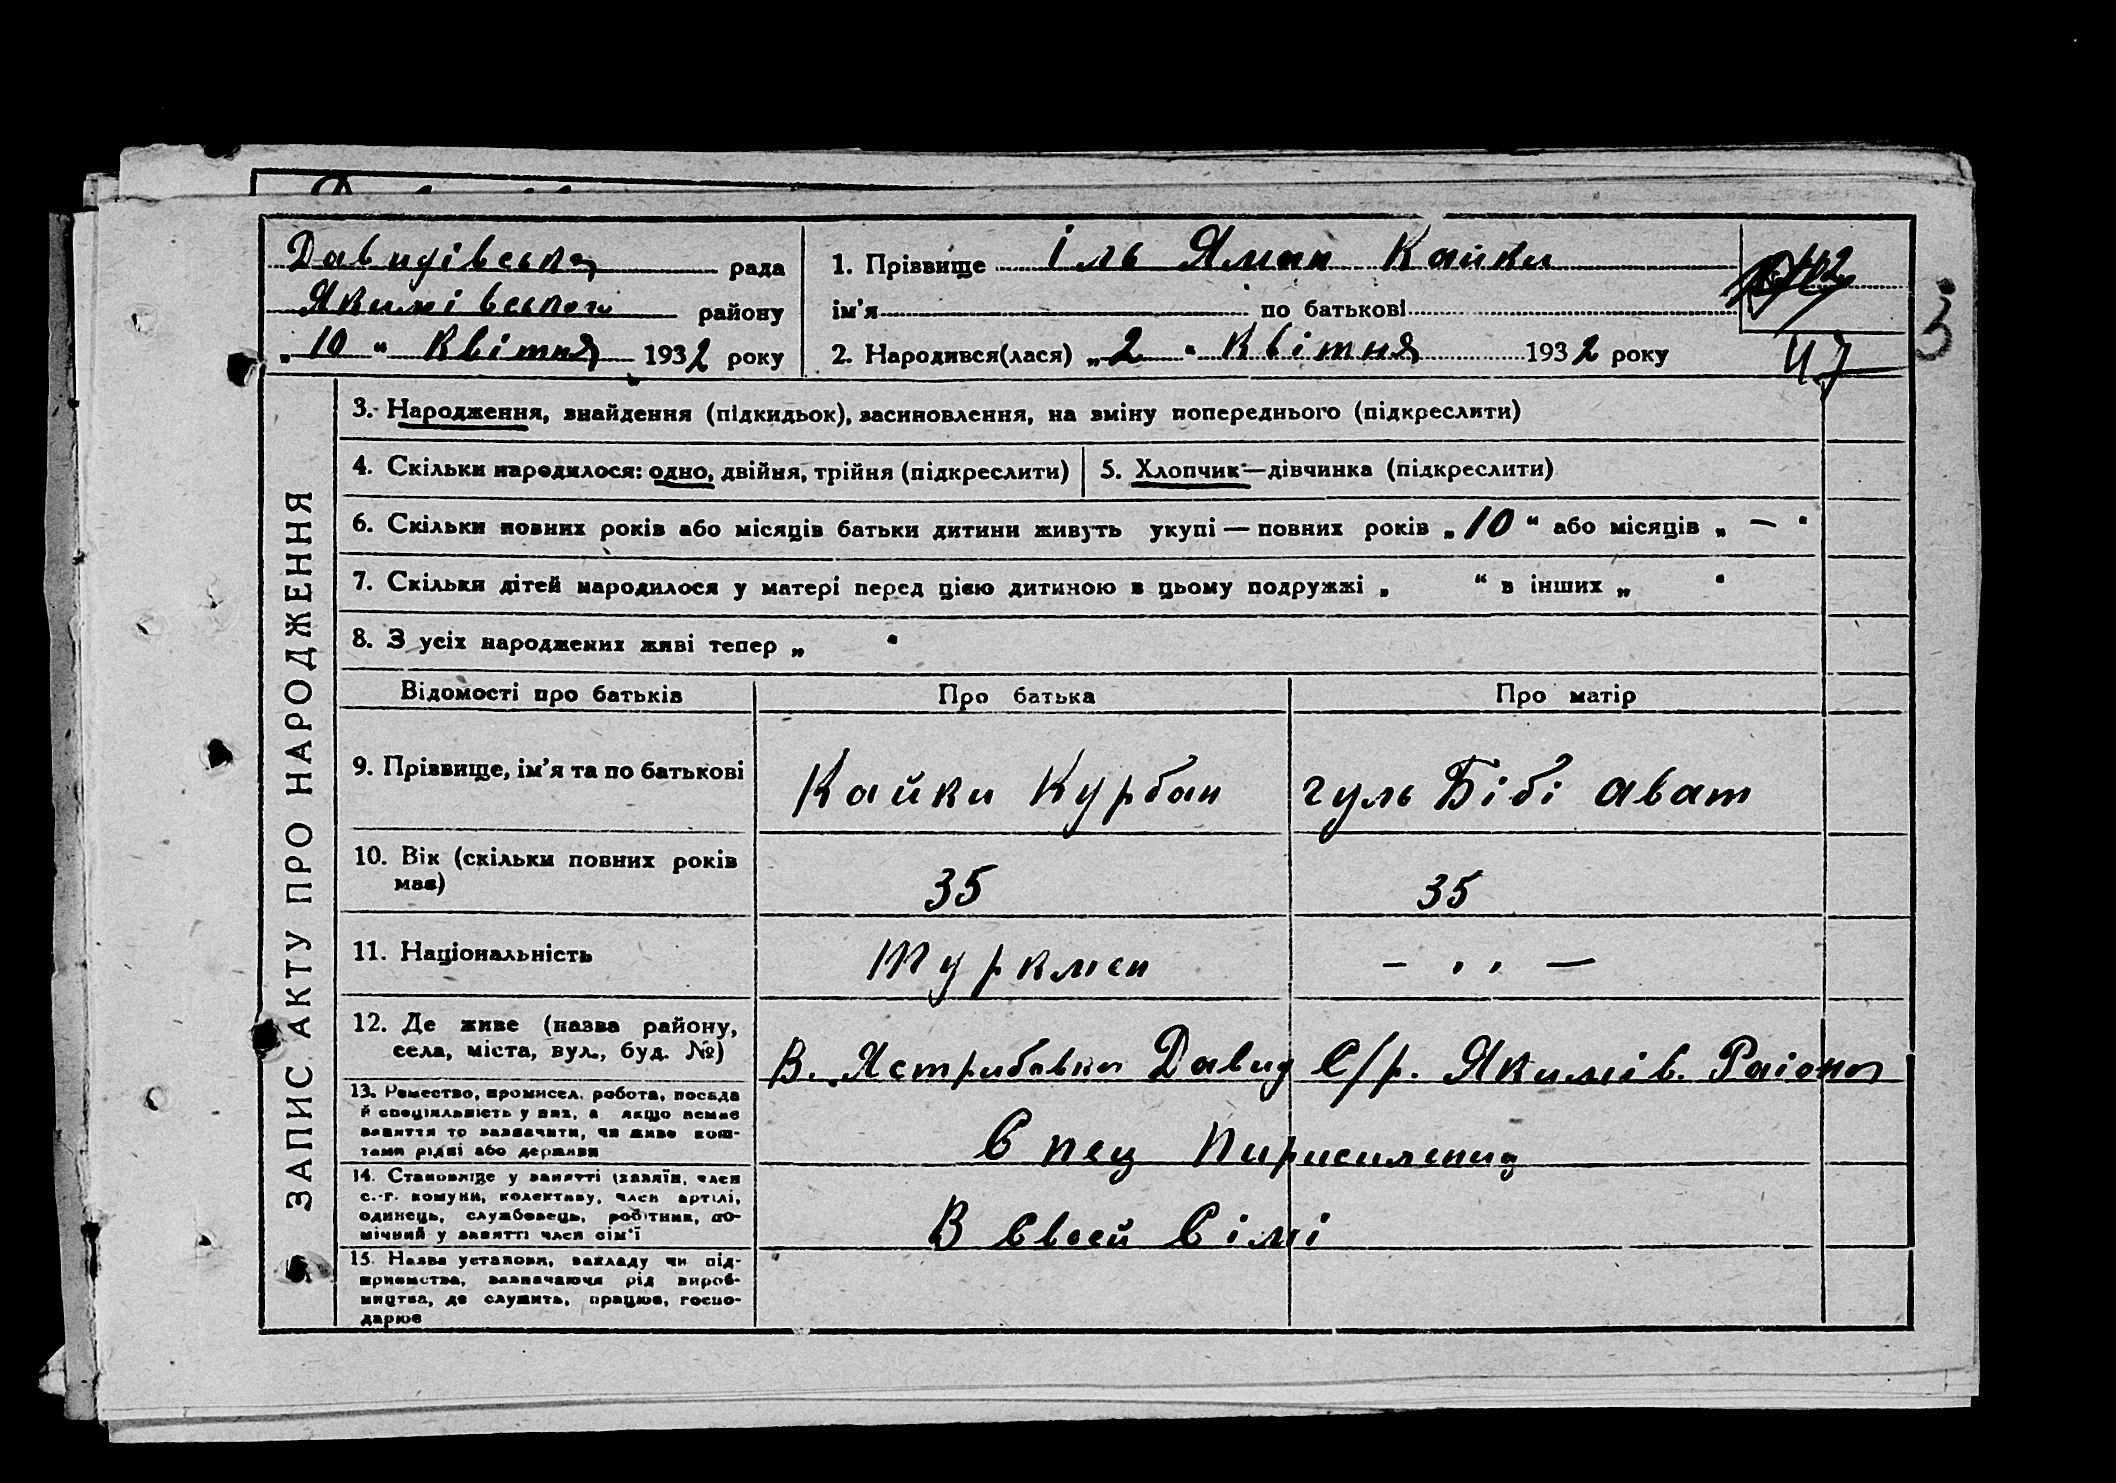 Давидівська рада
Якимівського району
„10" Квітня 1932 року
1. Прізвище Іль Яман Кайки
ім'я по батькові
2. Народився(лася) „2" Квітня 1932 року
47
3
ЗАПИС АКТУ ПРО НАРОДЖЕННЯ
3. Народження, знайдення (підкидьок), засиновлення, на зміну попереднього (підкреслити)
4. Скільки народилося: одно, двійня, трійня (підкреслити)
5. Хлопчик—дівчинка (підкреслити)
6. Скільки повних років або місяців батьки дитини живуть укупі — повних років „10" або місяців „—"
7. Скільки дітей народилося у матері перед цією дитиною в цьому подружжі „ " в інших „ "
8. З усіх народжених живі тепер „ "
Відомості про батьків Про батька Про матір
9. Прізвище, ім'я та по батькові Кайки Курбан гуль Бібі ават
10. Вік (скільки повних років має) 35 35
11. Національність Туркмен — „ —
12. Де живе (назва району, села, міста, вул., буд. №)
В. Ястрибовка Давид С/р. Якимів. Раіона
13. Ремество, промисел, робота, посада
й спеціяльність у них, а якщо немає
заняття то зазначити, чи живе кош-
тами рідні або держави
Спец
14. Становище у занятті (хазяїн, член
с.-г. комуни, колективу, член артілі,
одинець, службовець, робітник, по-
мічний у занятті член сім'ї
В Своей Сімі
15. Назва установи, закладу чи під-
приємства, зазначаючи рід вироб-
ництва, де служить, працює, госпо-
дарює